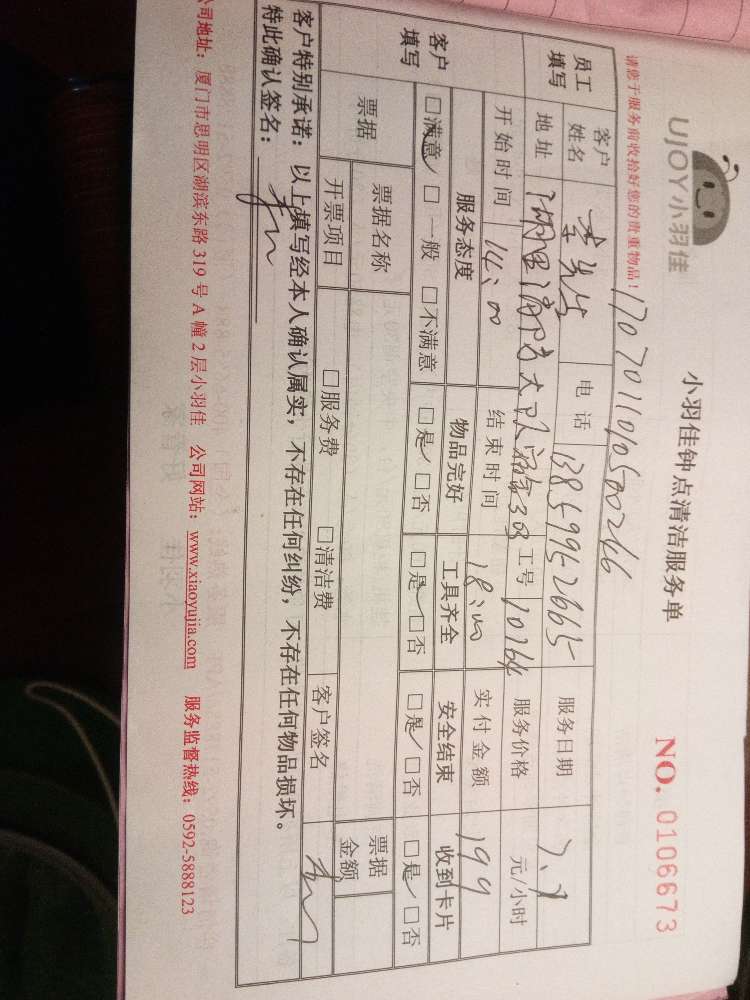 UJOY小羽佳
小羽佳钟点清洁服务单
NO. 0106673
请您于服务前收拾好您的贵重物品!
1707011010500266
员工填写
客户姓名 李先生 电话 13859952665 服务日期 7.9
地址 湖里消防大队宿舍303 工号 10764 服务价格 元/小时
开始时间 14:00 结束时间 18:00 实付金额 199
客户填写
服务态度 物品完好 工具齐全 安全结束 收到卡片
□满意✓ □一般 □不满意 □是✓ □否 □是✓ □否 □是✓ □否 □是✓ □否
票据 票据名称 票据金额
开票项目 □服务费 □清洁费 客户签名
客户特别承诺:以上填写经本人确认属实,不存在任何纠纷,不存在任何物品损坏。
特此确认签名:
公司地址:厦门市思明区湖滨东路 319 号 A 幢 2 层小羽佳 公司网站:www.xiaoyujia.com 服务监督热线:0592-5888123